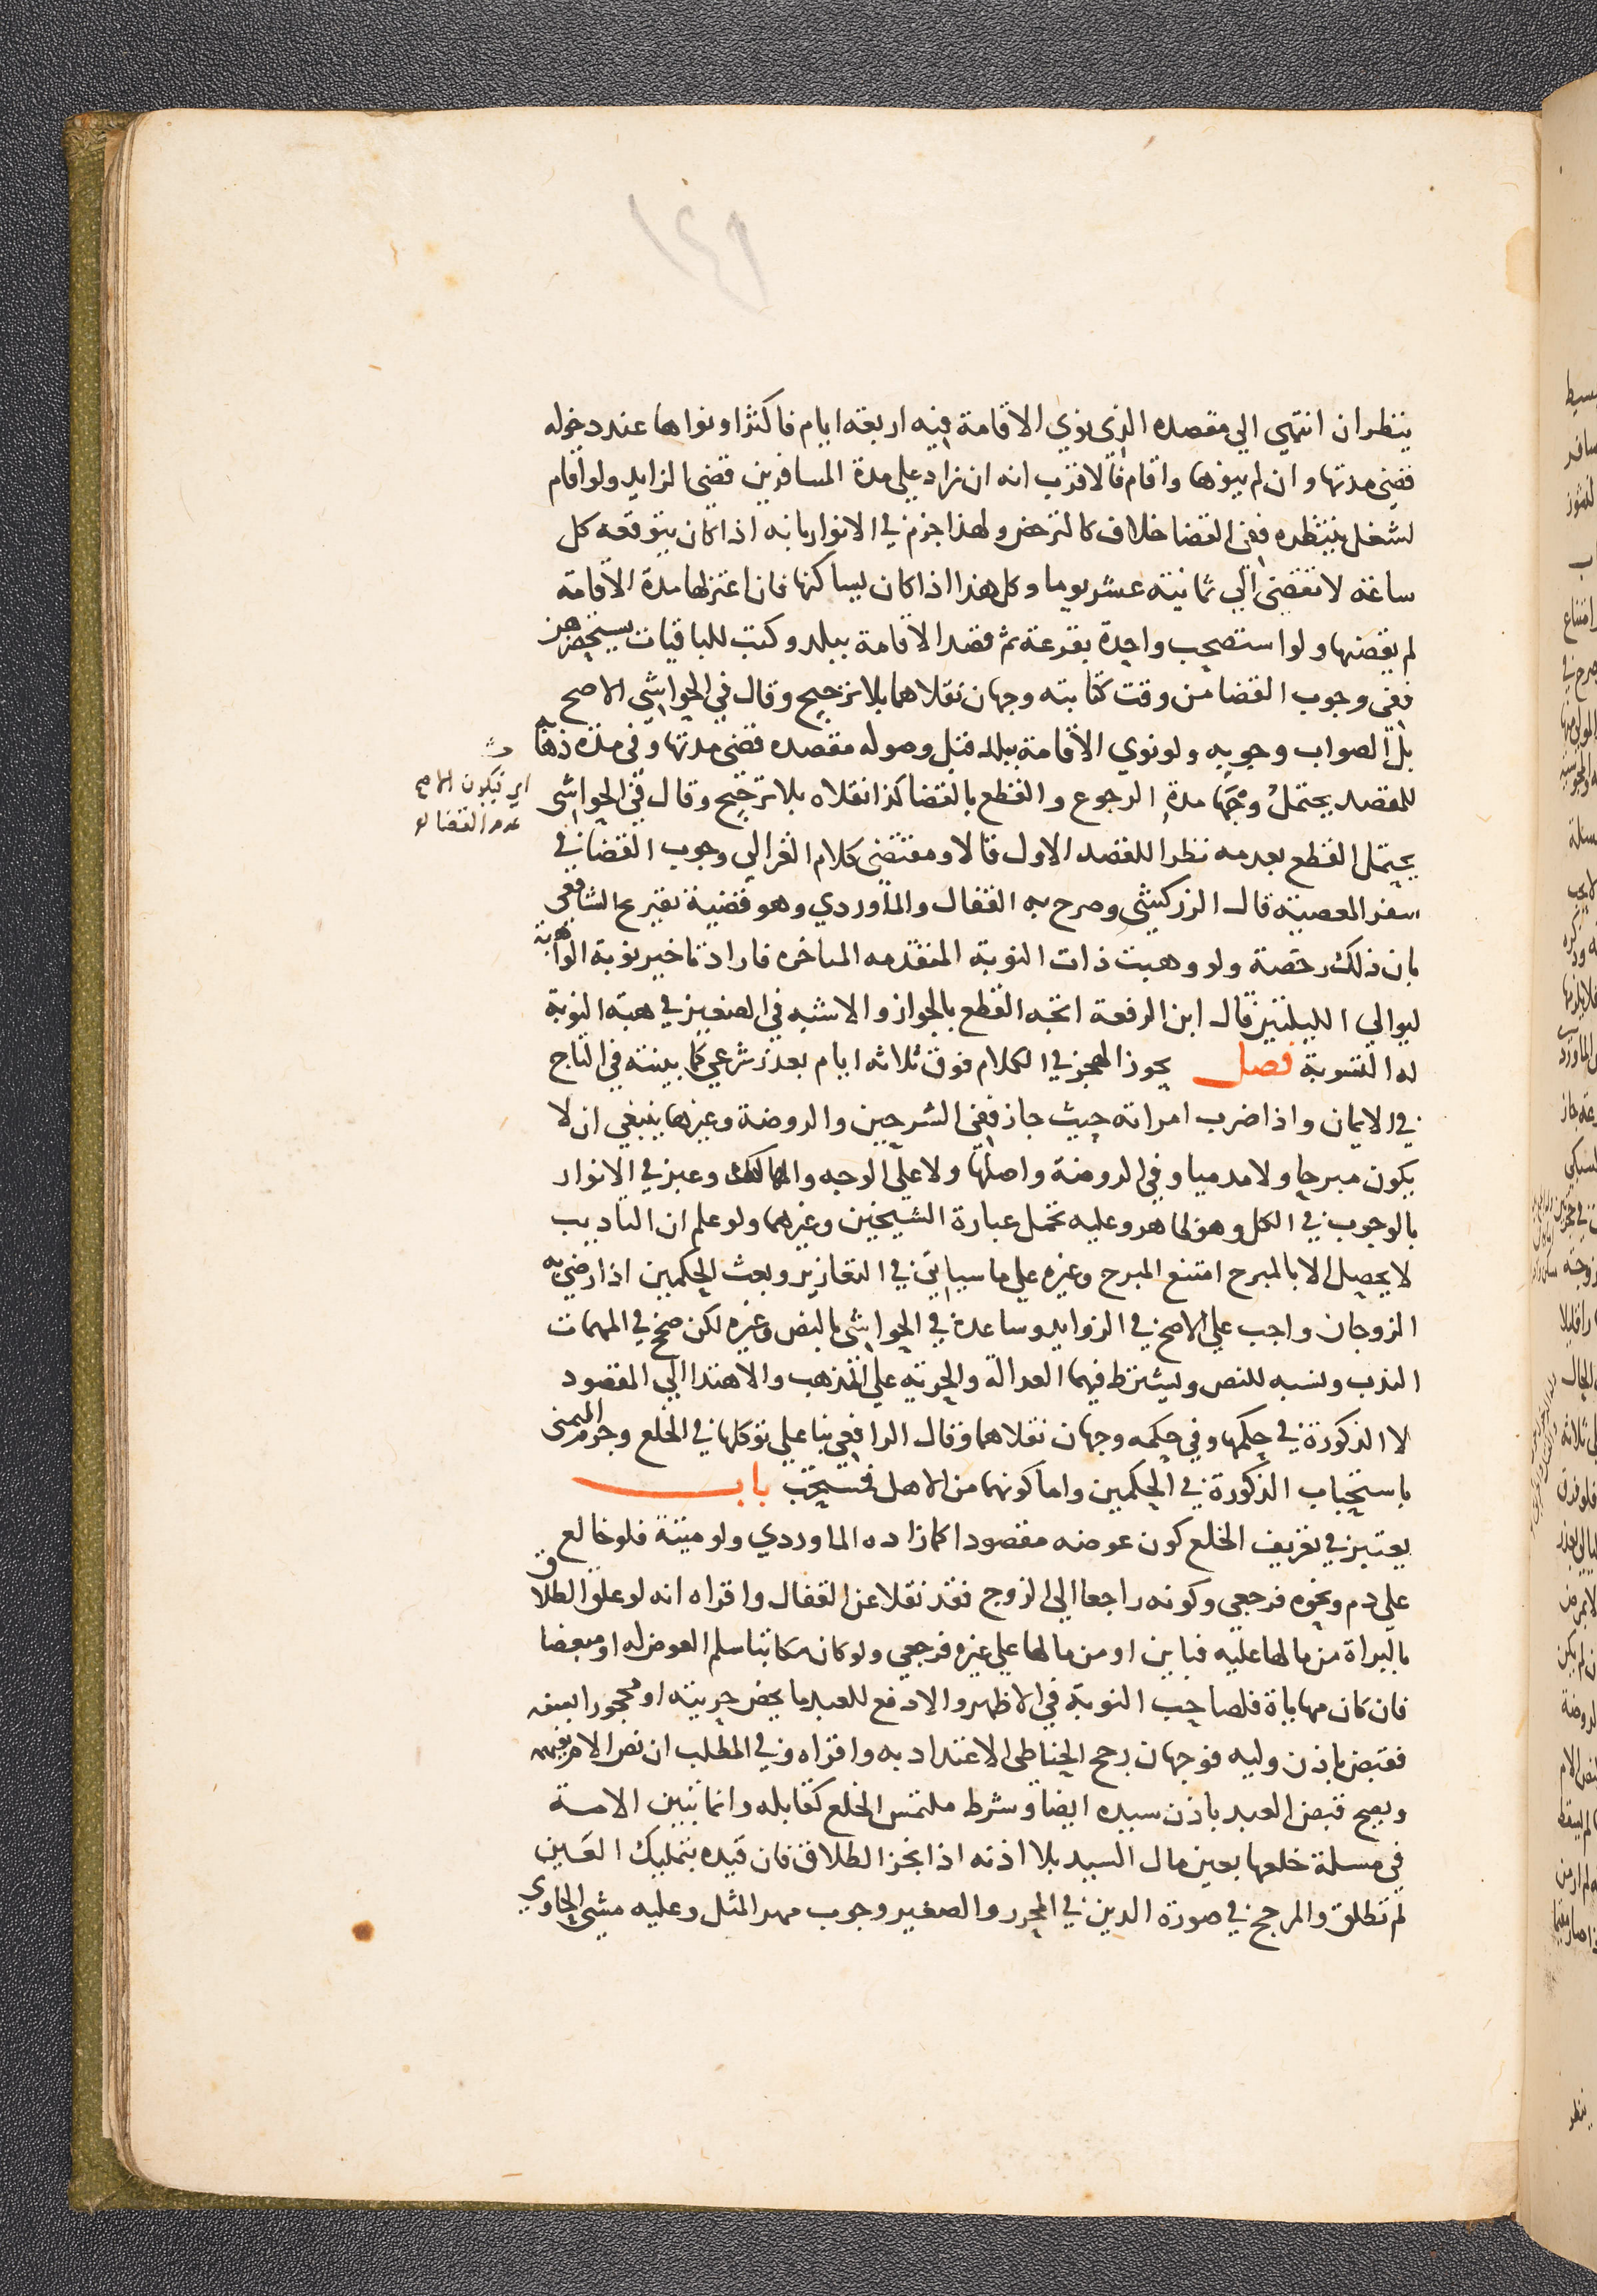 ينظر ان انتهي الي مقصده الذي نوي الاقامة فيه اربعة ايام فاكثر او نواها عند دخوله
قضي مدتها وان لم ينوها واقام فالاقرب انه ان زاد علي مدة المسافرين قضي الزايد ولو اقام
لشغل ينتظره ففي القضا خلاف كالترخص ولهذا جزم في الانوار بانه اذا كان يتوقعه كل
ساعة لا تقضي الي ثمانية عشر يوما وكل هذا اذا كان يساكنها فان اعتزلها مدة الاقامة
لم يقضها ولو استصحب واحدة بقرعة ثم قصد الاقامة ببلد وكتب للباقيات يستحضرهن
ففي وجوب القضا من وقت كتابته وجهان نقلاهما بلا ترجيح وقال في الحواشي الاصح
بل الصواب وجوبه ولو نوي الاقامة ببلد قبل وصوله مقصده قضي مدتها وفي مدة ذهابه
للمقصد يحتمل وجها مدة الرجوع والقطع بالقضا كذا نقلاه بلا ترجيح وقال في الحواشي
اي فيكون الاصح
عدم القضا
يحتمل القطع بعدمه نظرا للقصد الاول قالا ومقتضي كلام الغزالي وجوب القضا في
سفر المعصية قال الزركشي وصرح به القفال والماوردي وهو قضية تفريع الشافعي
بان ذلك رخصة ولو وهبت ذات النوبة المتقدمه المتاخره فاراد تاخير نوبة الواهبة
ليوالي الليلتين قال ابن الرفعة اتجه القطع بالجواز والاشبه في الصغير في هبة النوبة
له التسوية فصل يجوز الهجر في الكلام فوق ثلاثه ايام بعذر شرعي كما بينته في التاج
في الايمان واذا ضرب امراته حيث جاز ففي الشرحين والروضة وغيرها ينبغي ان لا
يكون مبرحا ولا مدميا وفي الروضة واصلها ولا علي الوجه والمهالك وعبر في الانوار
بالوجوب في الكل وهو ظاهر وعليه تحمل عبارة الشيخين وغيرهما ولو علم ان التاديب
لا يحصل الا بالمبرح امتنع المبرح وغيره علي ما سياتي في التعازير وبعث الحكمين اذا رضي به
الزوجان واجب علي الاصح في الزوايد وساعده في الحواشي بالنص وغيره لكن صحح في المهمات
الندب ونسبه للنص ويشترط فيهما العدالة والحرية علي المذهب والاهتدا الي المقصود
لا الذكورة في حكمها وفي حكمه وجهان نقلاهما وقال الرافعي بنا علي توكلها في الخلع وجزم اليمني
باستحباب الذكورة في الحكمين واما كونهما من الاهل فمستحب باب
يعتبر في تعريف الخلع كون عوضه مقصودا كما زاده الماوردي ولو ميتة فلو خالع
علي دم ونحوه فرجعي وكونه راجعا الي الزوج فقد نقلا عن القفال واقراه انه لو علق الطلاق
بالبراة من مالها عليه فباين او من مالها علي غيره فرجعي ولو كان مكاتبا سلم العوض له او مبعضا
فان كان مهاياة فلصاحب النوبة في الاظهر والا دفع للعبد ما يخص حريته او محجورا بسفه
فقبض باذن وليه فوجهان رجح الحناطي الاعتداد به واقراه وفي المطلب ان نص الام يفهمه
ويصح قبض العبد باذن سيده ايضا وشرط ملتمس الخلع كقابله وانما تبين الامة
في مسلة خلعها بعين مال السيد بلا اذنه اذا نجز الطلاق فان قيده بتمليك العين
لم تطلق والمرجح في صورة الدين في المحرر والصغير وجوب مهر المثل وعليه مشي الحاوي